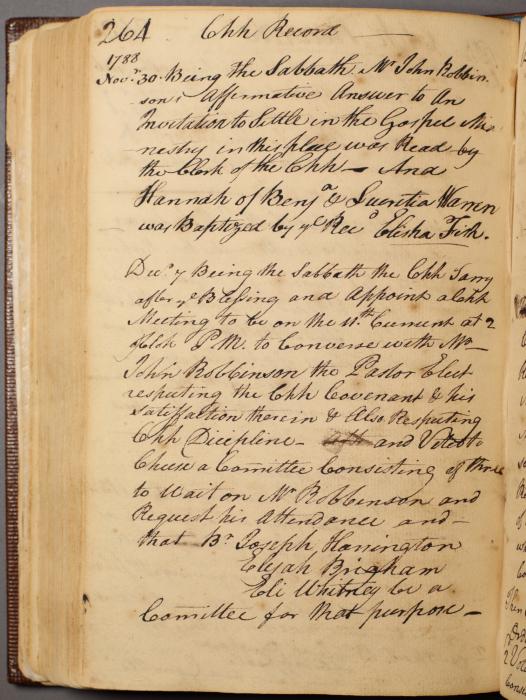 264 Chh Record
1788
Novr. 30. Being the Sabbath. Mr John Robbin-
sons Affirmative Answer to An
Invitation to Settle in the Gospel Mi-
nestry in this place was Read by
the Clerk of the Chh — And
Hannah of Benja & Lucretia Warren
was Baptized by ye Revd Elisha Fish.
Decr 7 Being the Sabbath the Chh Tarry
after ye Blessing and Appoint a Chh
Meeting to be on the 11th Current at 2
oClok P.M. to Converse with Mr
John Robbinson the Pastor Elect
respecting the Chh Covenant & his
satisfaction therein & Also Respecting
Chh Dicepline - and Voted to
Chuse a Comittee Consisting of three
to Wait on Mr Robbinson and
Request his Attendance and -
that Br Joseph Harrington
Elijah Brigham
Eli Whitney be a
Comittee for that purpose -